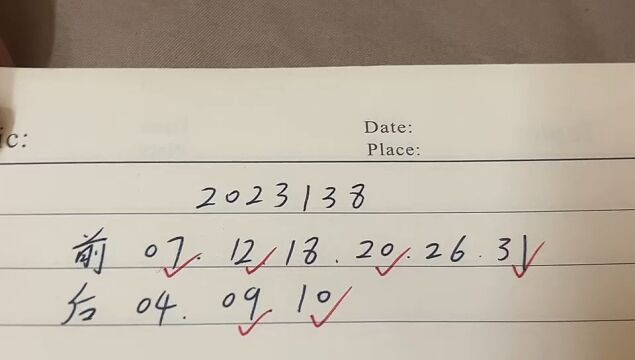 ic:
Date:
Place:
2023138
前 07. 12. 18. 20. 26. 31
后 04. 09. 10